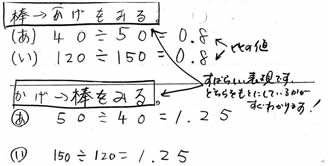 棒→かげをみる。
(あ) 40÷50=0.8
(い) 120÷150=0.8
比の値
すばらしい表現です。
どちらをもとにしているかが
すぐわかります!
かげ→棒をみる。
あ 50÷40=1.25
い 150÷120=1.25